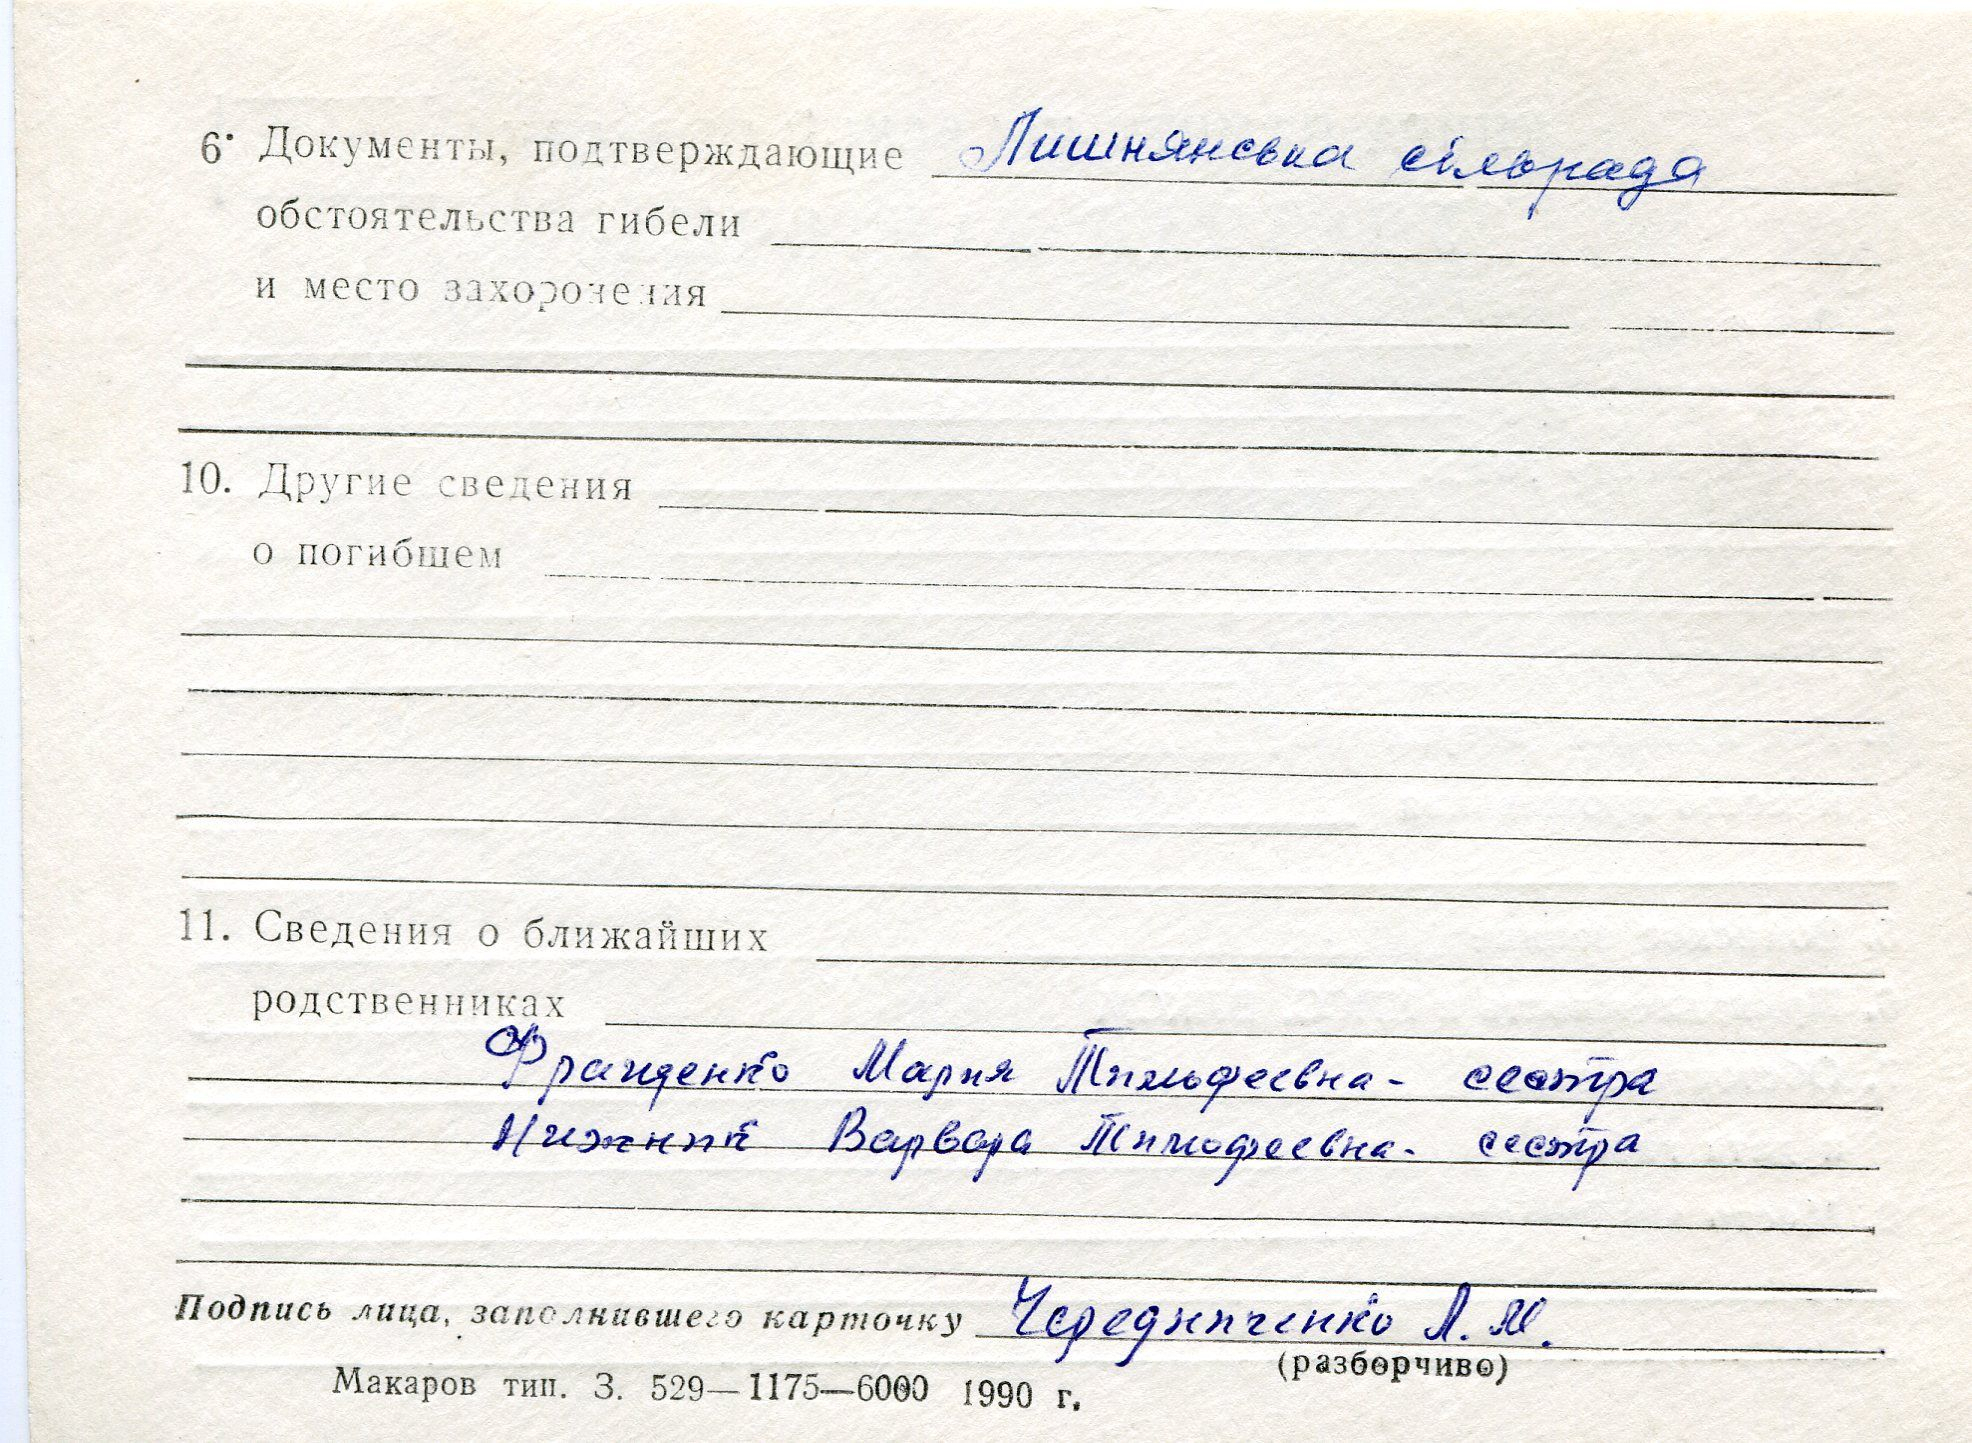 6. Документы, подтверждающие Лишнянська сільрада
обстоятельства гибели
и место захоронения
10. Другие сведения
о погибшем
11. Сведения о ближайших
родственниках
Мария Тимофеевна - сестра
Варвара Тимофеевна - сестра
Подпись лица, заполнившего карточку Чередниченко Л. М.
(разборчиво)
Макаров тип. З. 529—1175—6000 1990 г.